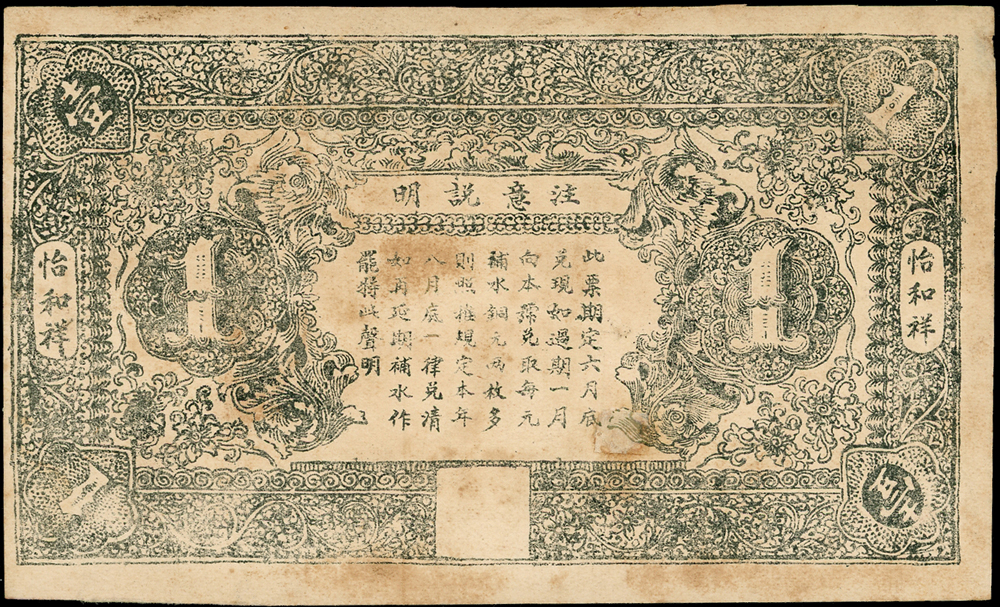 壹
1
注意説明
怡和祥
1
此票期定六月底
兌現如過期一月
向本號兌取每元
補水銅元兩枚多
則照推規定本年
八月底一律兌清
如再延期補水作
罷特此聲明
1
怡和祥
1
壹